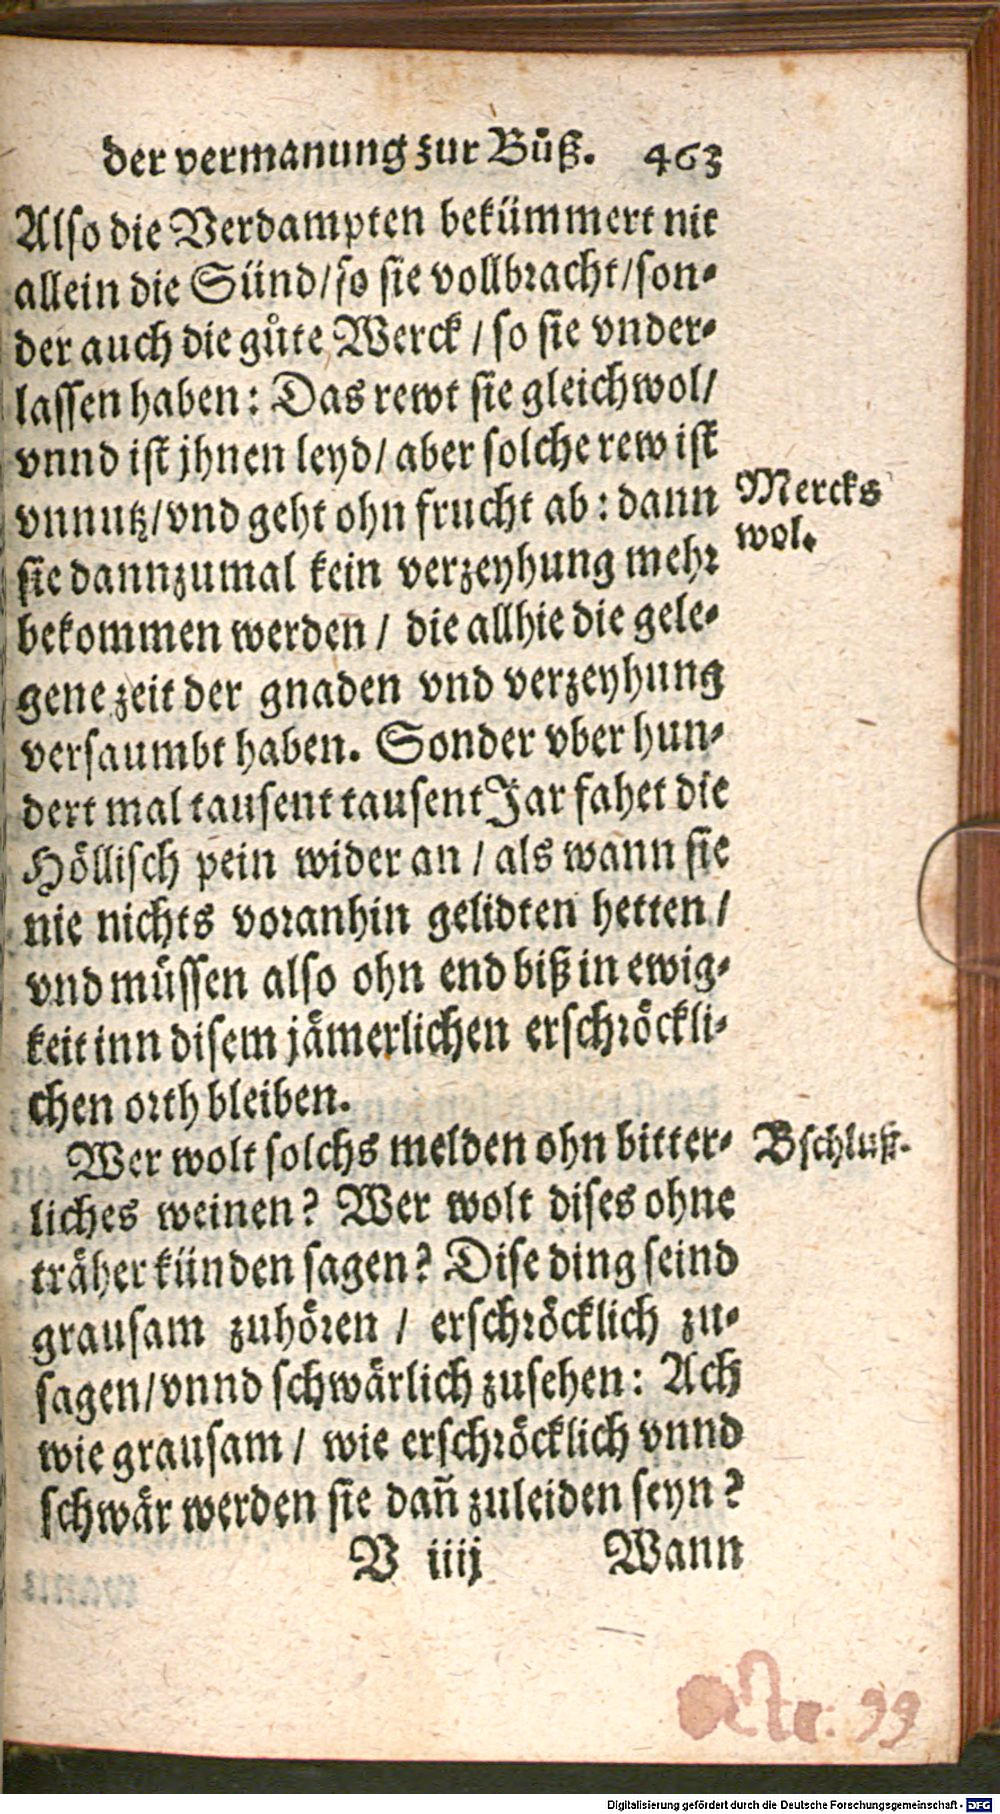 der vermanung zur Bůß. 463
Also die Verdampten bekümmert nit
allein die Sünd/so sie vollbracht/son-
der auch die gůte Werck / so sie vnder-
lassen haben: Das rewt sie gleichwol/
vnnd ist jhnen leyd/ aber solche rew ist
vnnutz/vnd geht ohn frucht ab: dann
Mercks
wol.
sie dannzumal kein verzeyhung mehr
bekommen werden / die allhie die gele-
gene zeit der gnaden vnd verzeyhung
versaumbt haben. Sonder vber hun-
dert mal tausent tausent Jar fahet die
Höllisch pein wider an / als wann sie
nie nichts voranhin gelidten hetten /
vnd müssen also ohn end biß in ewig-
keit inn disem jämerlichen erschröckli-
chen orth bleiben.
Wer wolt solchs melden ohn bitter-
Bschluß.
liches weinen? Wer wolt dises ohne
träher künden sagen? Dise ding seind
grausam zuhören / erschröcklich zu-
sagen/vnnd schwärlich zusehen: Ach
wie grausam / wie erschröcklich vnnd
schwär werden sie dañ zuleiden seyn?
V iiij Wann
99
Digitalisierung gefördert durch die Deutsche Forschungsgemeinschaft - DFG